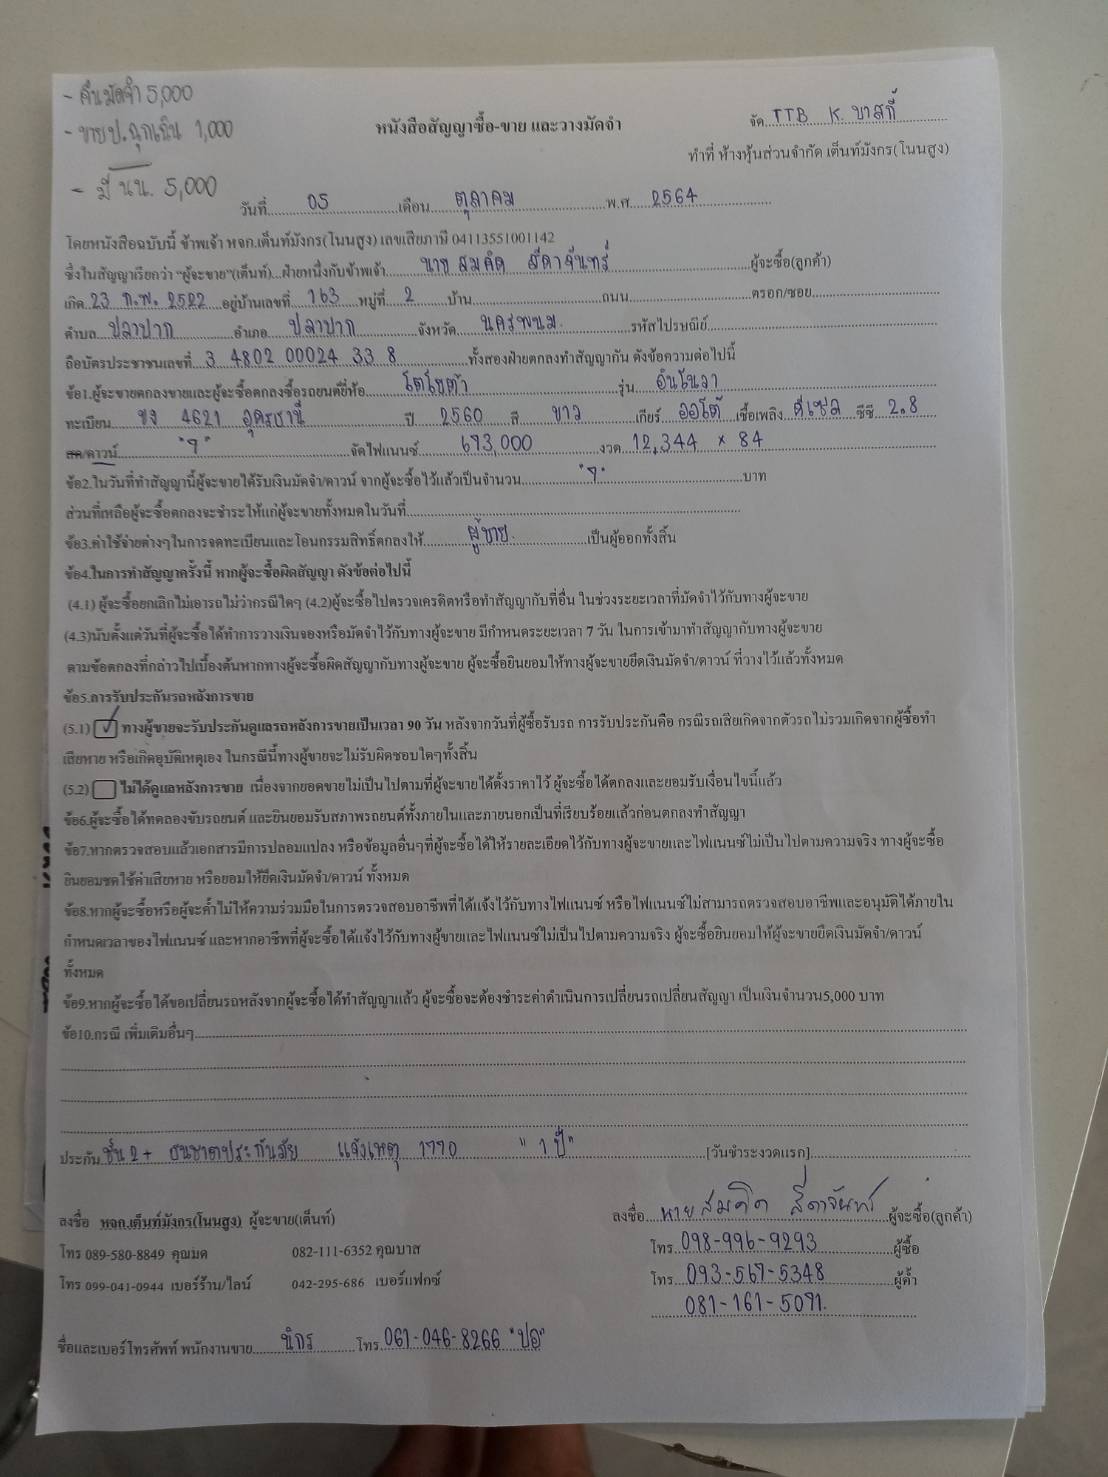 - คืนมัดจำ 5,000
- ขายป.ฉุกเฉิน 1,000
- มี นน. 5,000
จัด TTB K. บาสกี้
หนังสือสัญญาซื้อ-ขาย และวางมัดจำ
ทำที่ ห้างหุ้นส่วนจำกัด เต็นท์มังกร(โนนสูง)
วันที่ 05 เดือน ตุลาคม พ.ศ. 2564
โดยหนังสือฉบับนี้ ข้าพเจ้า หจก.เต็นท์มังกร(โนนสูง) เลขเสียภาษี 04113551001142
ซึ่งในสัญญาเรียกว่า “ผู้จะขาย”(เต็นท์)...ฝ่ายหนึ่งกับข้าพเจ้า นาย สมคิด สีดาจันทร์ ผู้จะซื้อ(ลูกค้า)
เกิด 23 ก.พ. 2522 อยู่บ้านเลขที่ 163 หมู่ที่ 2 บ้าน ถนน ตรอก/ซอย
ตำบล ปลาปาก อำเภอ ปลาปาก จังหวัด นครพนม. รหัสไปรษณีย์
ถือบัตรประชาชนเลขที่ 3 4802 00024 33 8 ทั้งสองฝ่ายตกลงทำสัญญากัน ดังข้อความต่อไปนี้
ข้อ1.ผู้จะขายตกลงขายและผู้จะซื้อตกลงซื้อรถยนต์ยี่ห้อ โตโยต้า รุ่น อินโนวา
ทะเบียน ขง 4621 อุดรธานี ปี 2560 สี ขาว เกียร์ ออโต้ เชื้อเพลิง ดีเซล ซีซี 2.8
สด/ดาวน์ "7" จัดไฟแนนซ์ 693,000 งวด 12,344 × 84
ข้อ2.ในวันที่ทำสัญญานี้ผู้จะขายได้รับเงินมัดจำ/ดาวน์ จากผู้จะซื้อไว้แล้วเป็นจำนวน "7" บาท
ส่วนที่เหลือผู้จะซื้อตกลงจะชำระให้แก่ผู้จะขายทั้งหมดในวันที่
ข้อ3.ค่าใช้จ่ายต่างๆในการจดทะเบียนและโอนกรรมสิทธิ์ตกลงให้ ผู้ขาย. เป็นผู้ออกทั้งสิ้น
ข้อ4.ในการทำสัญญาครั้งนี้ หากผู้จะซื้อผิดสัญญา ดังข้อต่อไปนี้
(4.1) ผู้จะซื้อยกเลิกไม่เอารถไม่ว่ากรณีใดๆ (4.2)ผู้จะซื้อไปตรวจเครดิตหรือทำสัญญากับที่อื่น ในช่วงระยะเวลาที่มัดจำไว้กับทางผู้จะขาย
(4.3)นับตั้งแต่วันที่ผู้จะซื้อได้ทำการวางเงินจองหรือมัดจำไว้กับทางผู้จะขาย มีกำหนดระยะเวลา 7 วัน ในการเข้ามาทำสัญญากับทางผู้จะขาย
ตามข้อตกลงที่กล่าวไปเบื้องต้นหากทางผู้จะซื้อผิดสัญญากับทางผู้จะขาย ผู้จะซื้อยินยอมให้ทางผู้จะขายยึดเงินมัดจำ/ดาวน์ ที่วางไว้แล้วทั้งหมด
ข้อ5.การรับประกันรถหลังการขาย
(5.1) ✓ ทางผู้ขายจะรับประกันดูแลรถหลังการขายเป็นเวลา 90 วัน หลังจากวันที่ผู้ซื้อรับรถ การรับประกันคือ กรณีรถเสียเกิดจากตัวรถไม่รวมเกิดจากผู้ซื้อทำ
เสียหาย หรือเกิดอุบัติเหตุเอง ในกรณีนี้ทางผู้ขายจะไม่รับผิดชอบใดๆทั้งสิ้น
(5.2) ไม่ได้ดูแลหลังการขาย เนื่องจากยอดขายไม่เป็นไปตามที่ผู้จะขายได้ตั้งราคาไว้ ผู้จะซื้อได้ตกลงและยอมรับเงื่อนไขนี้แล้ว
ข้อ6.ผู้จะซื้อได้ทดลองขับรถยนต์ และยินยอมรับสภาพรถยนต์ทั้งภายในและภายนอกเป็นที่เรียบร้อยแล้วก่อนตกลงทำสัญญา
ข้อ7.หากตรวจสอบแล้วเอกสารมีการปลอมแปลง หรือข้อมูลอื่นๆที่ผู้จะซื้อได้ให้รายละเอียดไว้กับทางผู้จะขายและไฟแนนซ์ไม่เป็นไปตามความจริง ทางผู้จะซื้อ
ยินยอมชดใช้ค่าเสียหาย หรือยอมให้ยึดเงินมัดจำ/ดาวน์ ทั้งหมด
ข้อ8.หากผู้จะซื้อหรือผู้จะค้ำไม่ให้ความร่วมมือในการตรวจสอบอาชีพที่ได้แจ้งไว้กับทางไฟแนนซ์ หรือไฟแนนซ์ไม่สามารถตรวจสอบอาชีพและอนุมัติได้ภายใน
กำหนดเวลาของไฟแนนซ์ และหากอาชีพที่ผู้จะซื้อได้แจ้งไว้กับทางผู้ขายและไฟแนนซ์ไม่เป็นไปตามความจริง ผู้จะซื้อยินยอมให้ผู้จะขายยึดเงินมัดจำ/ดาวน์
ทั้งหมด
ข้อ9.หากผู้จะซื้อได้ขอเปลี่ยนรถหลังจากผู้จะซื้อได้ทำสัญญาแล้ว ผู้จะซื้อจะต้องชำระค่าดำเนินการเปลี่ยนรถเปลี่ยนสัญญา เป็นเงินจำนวน5,000 บาท
ข้อ10.กรณี เพิ่มเติมอื่นๆ
ประกัน ชั้น 2+ ธนชาตประกันภัย แจ้งเหตุ 1770 "1 ปี" [วันชำระงวดแรก]
ลงชื่อ หจก.เต็นท์มังกร(โนนสูง) ผู้จะขาย(เต็นท์) ลงชื่อ นายสมคิด สีดาจันทร์ ผู้จะซื้อ(ลูกค้า)
โทร 089-580-8849 คุณมด 082-111-6352 คุณบาส โทร 098-996-9293 ผู้ซื้อ
โทร 099-041-0944 เบอร์ร้าน/ไลน์ 042-295-686 เบอร์แฟกซ์ โทร 093-567-5348 ผู้ค้ำ
081-161-5071.
ชื่อและเบอร์โทรศัพท์ พนักงานขาย นิกร โทร 061-046-8266 "ปอ"